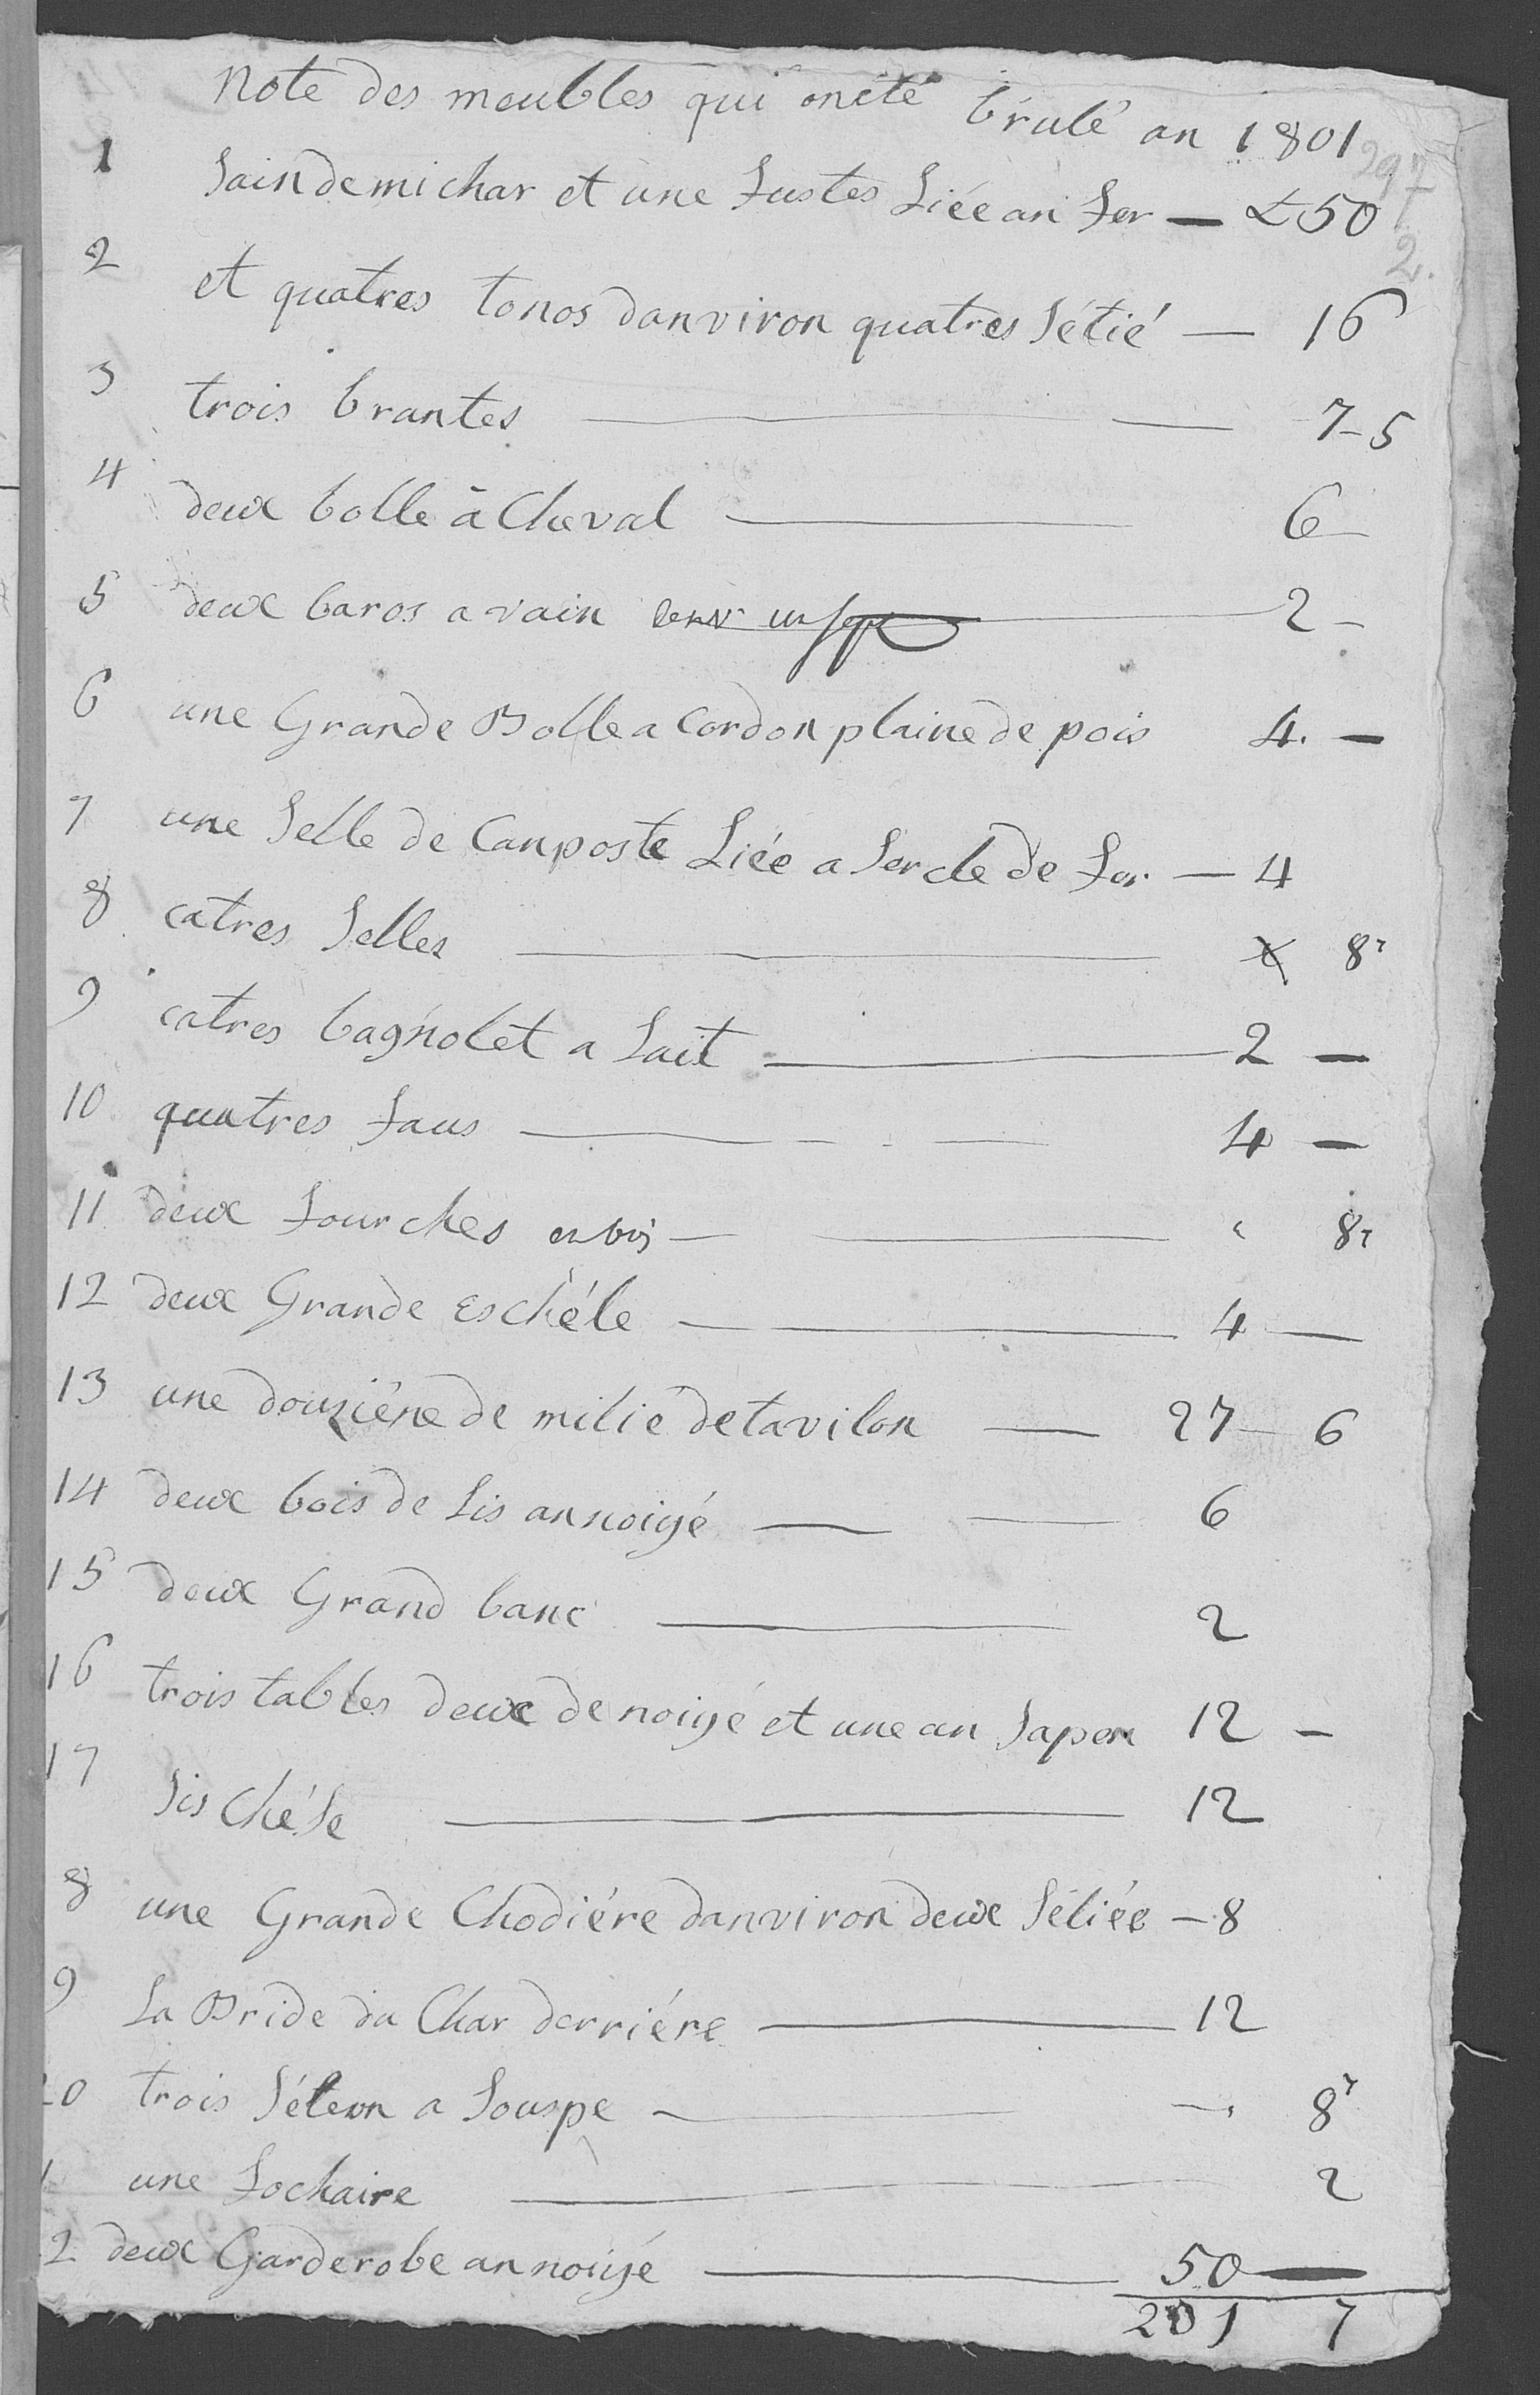 Note des meubles qui onété brulé an 1801
297
2.
1 Saindemichar et une Fustes Liée an Fer — £ 50
2 et quatres tonos danviron quatres Sétié — 16
3 trois brantes — 7-5
4 deux bolle à Cheval — 6
5 deux baros a vain — 2 –
6 une Grande Bolle a Cordon plaine de pois 4. —
7 une Selle de Canposte Liée a Sercle de Fer — 4
8 catres Selles — 8
9 catres bagnolet a Lait — 2 —
10 quatres Faus — 4 —
11 deux Fourches en bois — 8
12 deux Grande Eschéle — 4 —
13 une douziéne de milié de tavilon — 27 – 6
14 deux bois de Lis annoiyé — 6
15 deux Grand banc — 2
16 trois tables deux de noiyé et une an Sapen 12 –
17 Sis Chése — 12
8 une Grande Chodiére danviron deux Sétiée — 8
9 La Bride du Char derriére — 12
20 trois Séteon a Souspe — 8
1 une Fochaire — 2
2 deux Garderobe an noiyé — 50 —
201 7